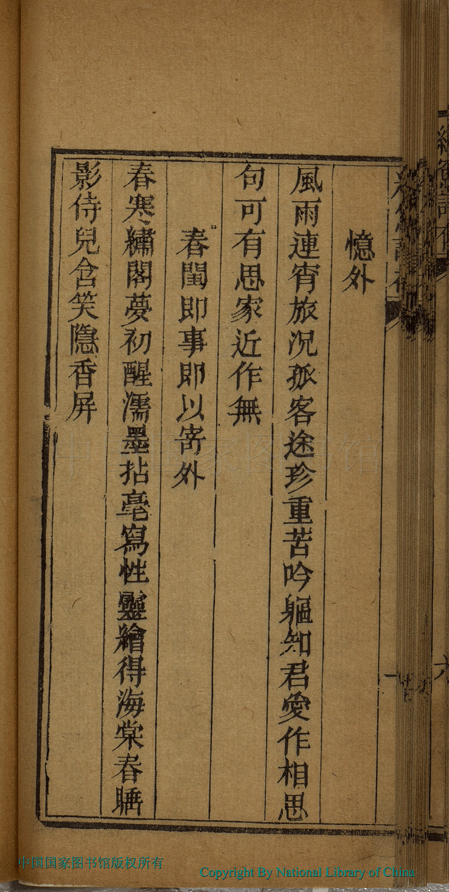 憶外
風雨連宵旅況孤客途珍重苦吟軀知君愛作相思
句可有思家近作無
春閨即事即以寄外
春寒繡閣夢初醒濡墨拈毫寫性靈繪得海棠春睡
影侍兒含笑隱香屏
中国国家图书馆版权所有
Copyright By National Library of China